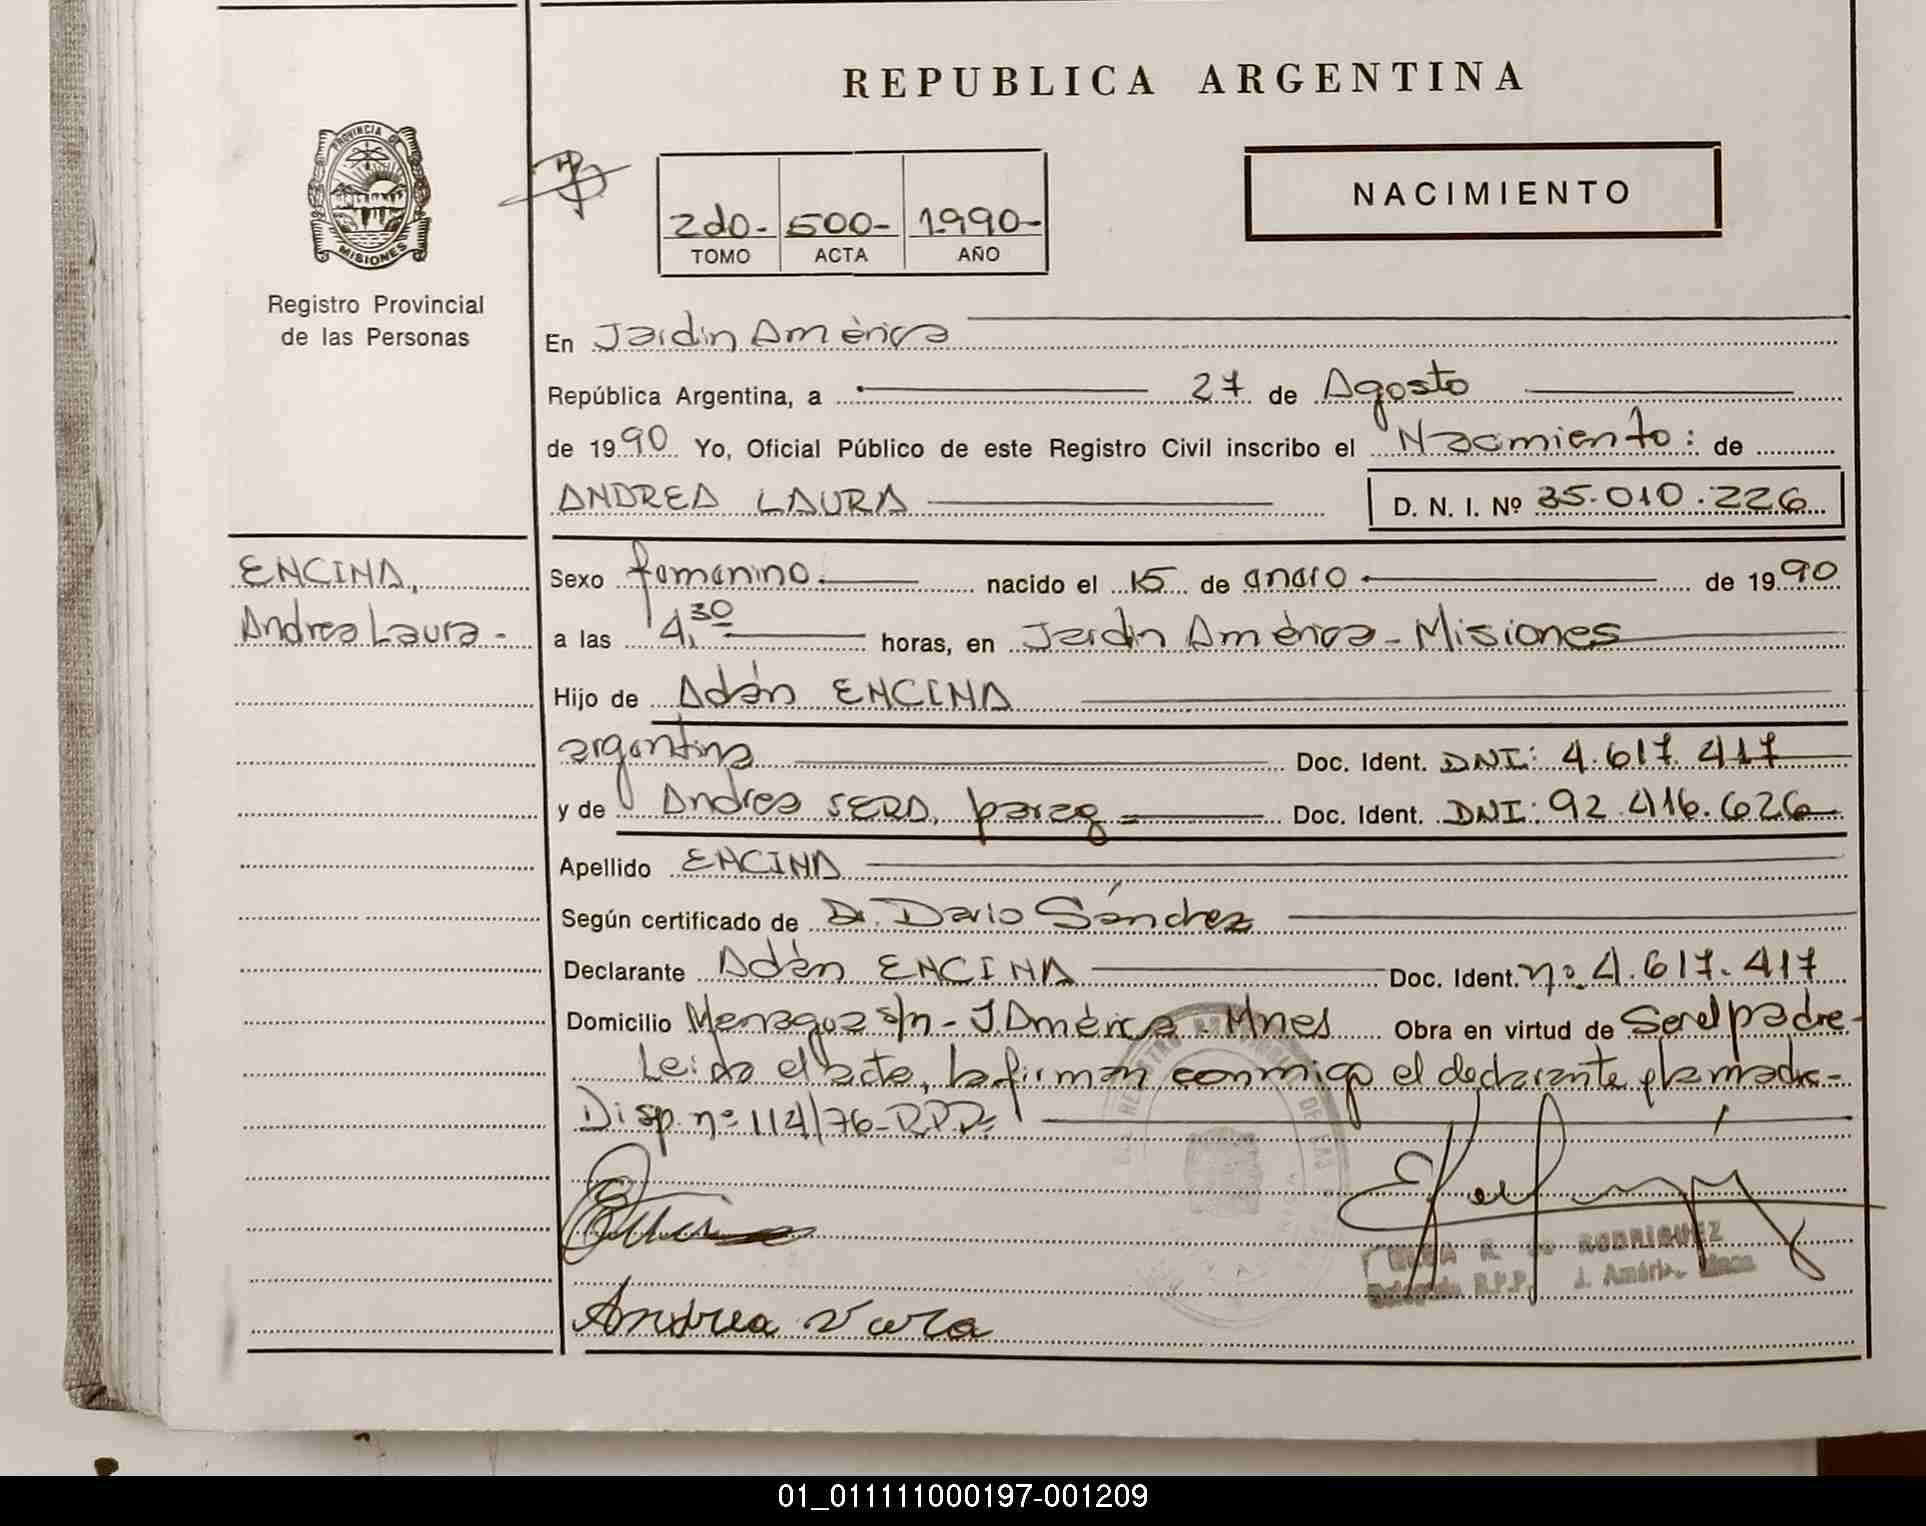 REPUBLICA ARGENTINA
PROVINCIA DE
MISIONES
Registro Provincial
de las Personas
2do- 500- 1.990-
TOMO ACTA AÑO
NACIMIENTO
En Jardín América
República Argentina, a 27 de Agosto
de 1990 Yo, Oficial Público de este Registro Civil inscribo el Nacimiento: de
ANDREA LAURA D. N. I. Nº 35.010.226
ENCINA,
Andrea Laura-
Sexo femenino nacido el 15 de enero de 1990
a las 4,30 horas, en Jardín América - Misiones
Hijo de Adán ENCINA
argentina Doc. Ident. DNI: 4.617.417
y de Andrea VERA, parag Doc. Ident. DNI: 92.416.626
Apellido ENCINA
Según certificado de Dr. Dario Sánchez
Declarante Adán ENCINA Doc. Ident. nº 4.617.417
Domicilio s/n - J.América - Mnes Obra en virtud de Ser el padre-
Leída el acta, la firman conmigo el declarante y la madre-
Disp. nº 114/76-
Andrea Vera
R. de RODRIGUEZ
Delegada R.P.P. J. América Mnes
01_011111000197-001209